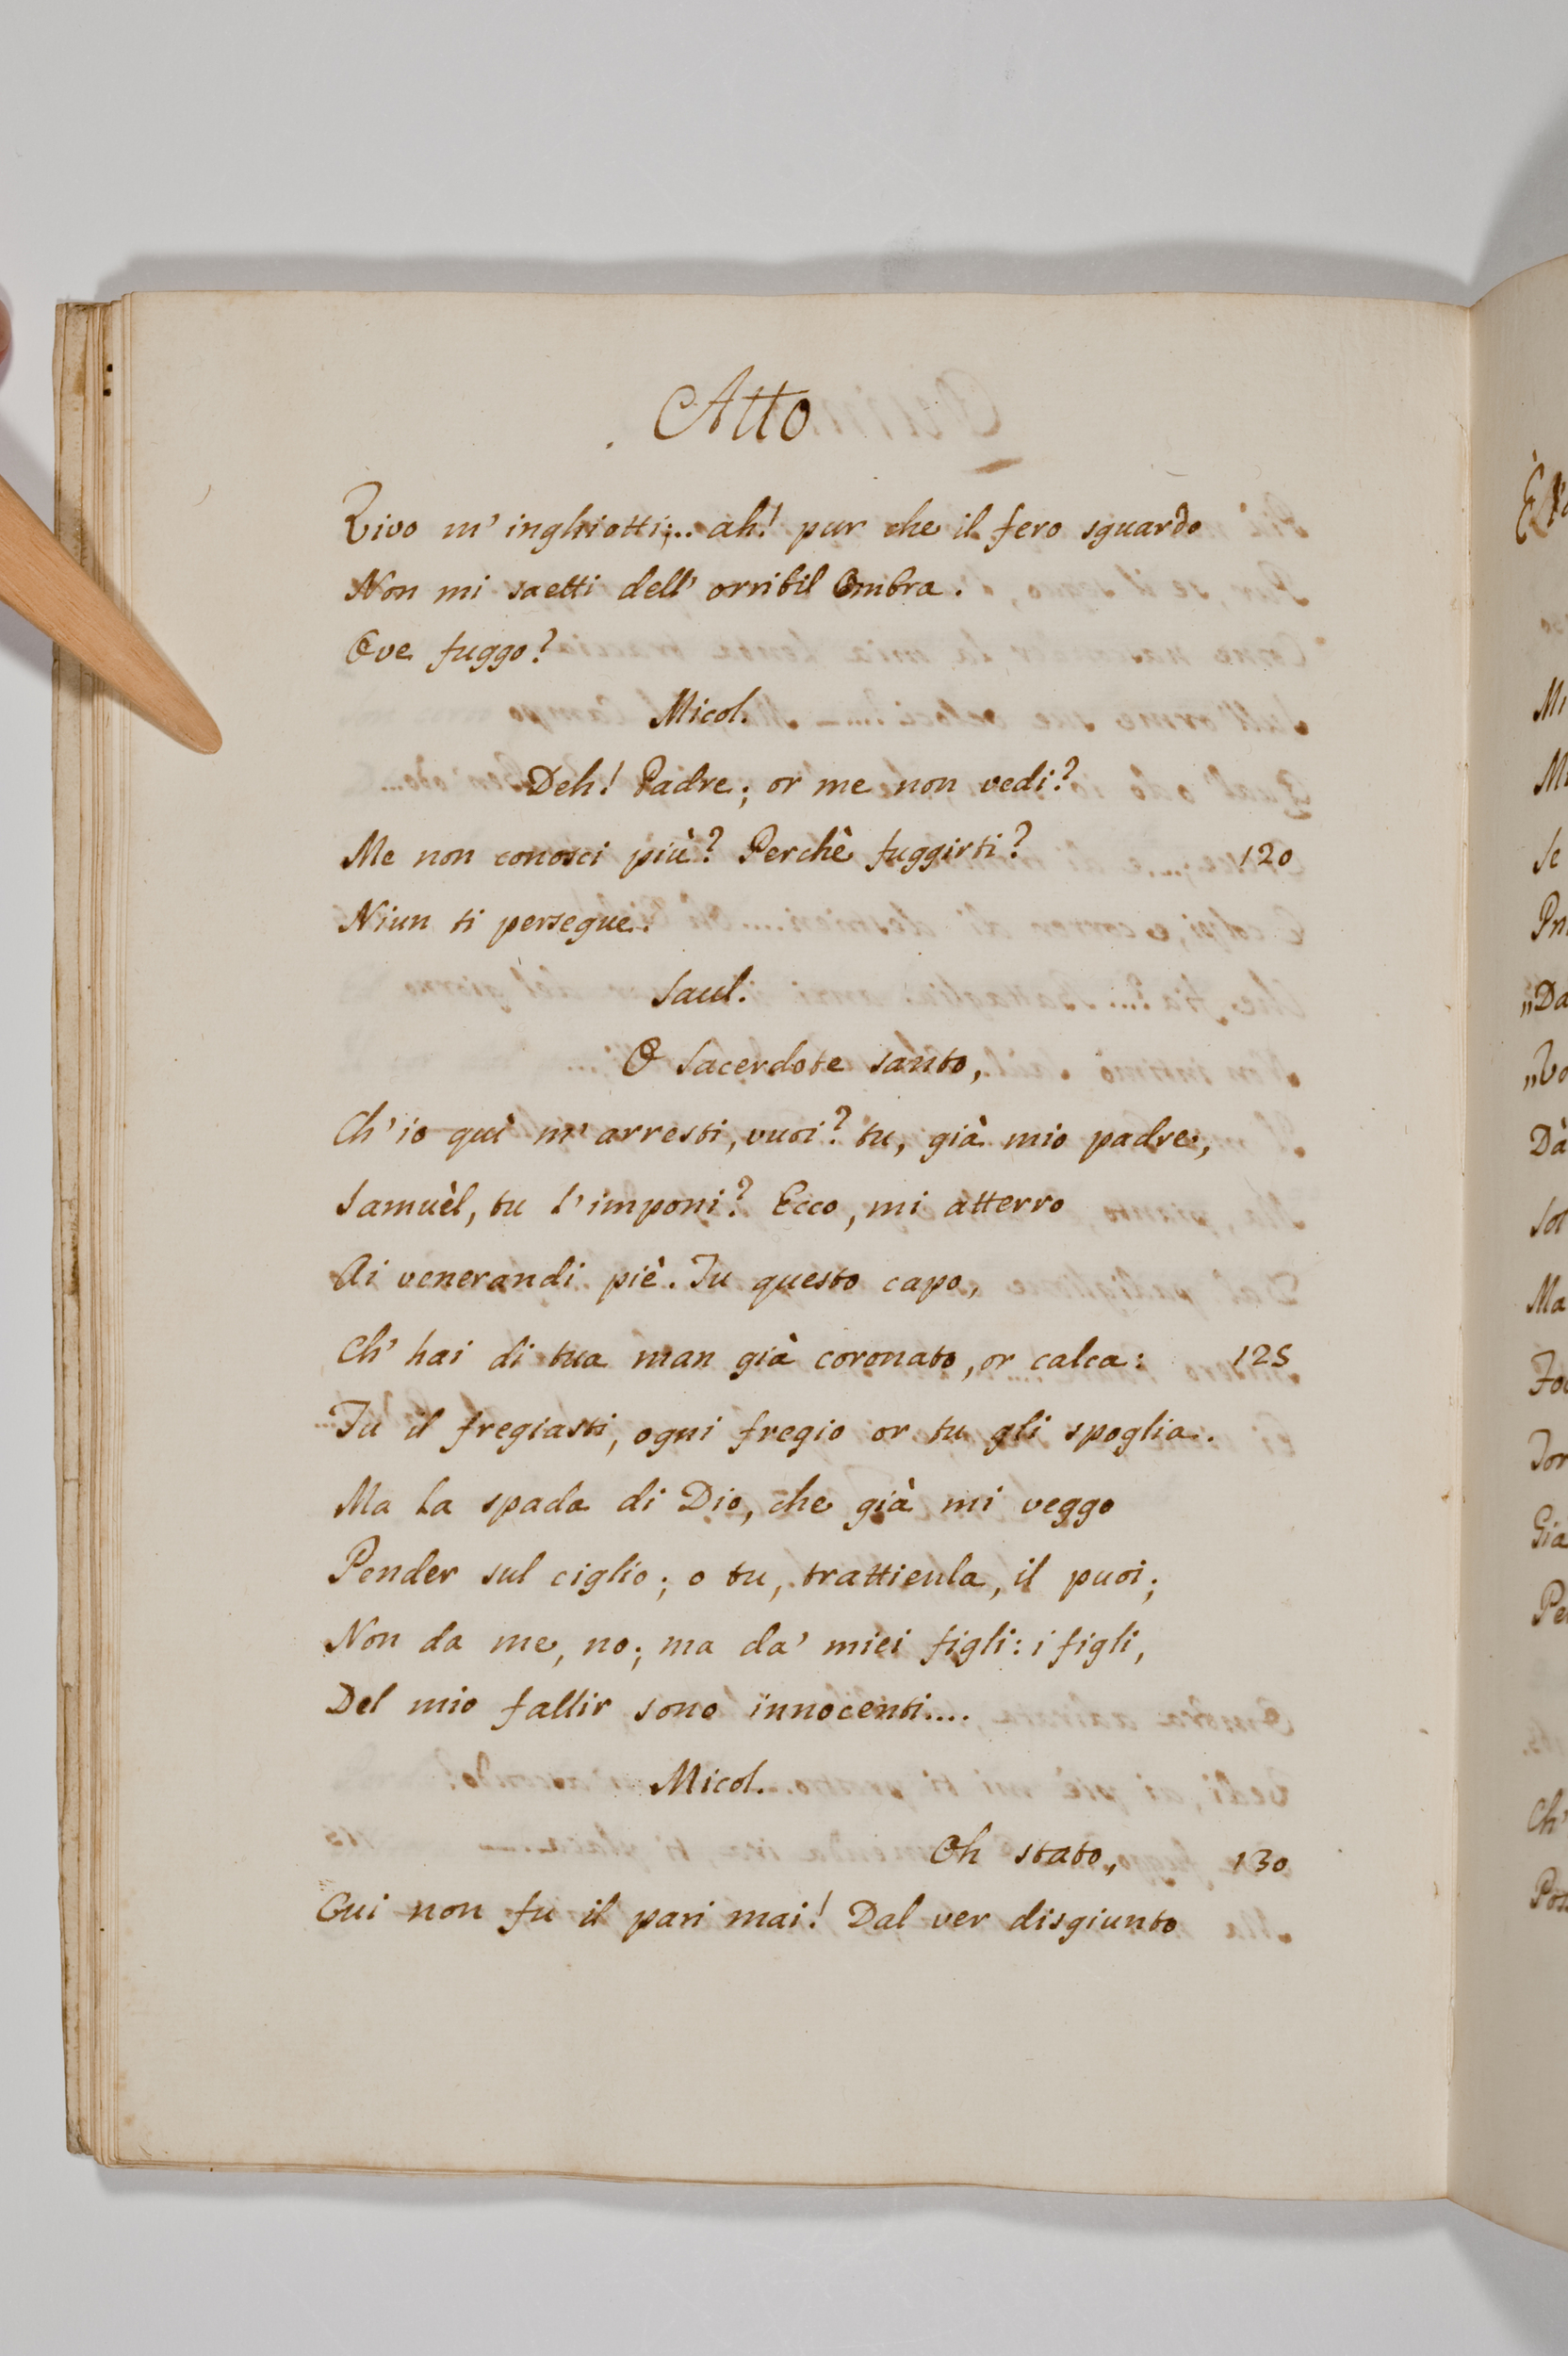 Atto
Vivo m'inghiotti;... ah! pur che il fero sguardo
Non mi saetti dell' orribil Ombra.
Ove fuggo?
Micol.
Deh! Padre; or me non vedi?
Me non conosci più? Perchè fuggirti?
120
Niun ti persegue.
Saul.
O Sacerdote santo,
Ch'io quì m'arresti, vuoi? tu, già mio padre,
Samuèl, tu l'imponi? Ecco, mi atterro
Ai venerandi piè. Tu questo capo,
Ch' hai di tua man già coronato, or calca:
125
Tu il fregiasti, ogni fregio or tu gli spoglia.
Ma la spada di Dio, che già mi veggo
Pender sul ciglio; o tu, trattienla, il puoi;
Non da me, no; ma da' miei figli: i figli,
Del mio fallir sono innocenti....
Micol.
Oh stato,
130
Cui non fu il pari mai! Dal ver disgiunto